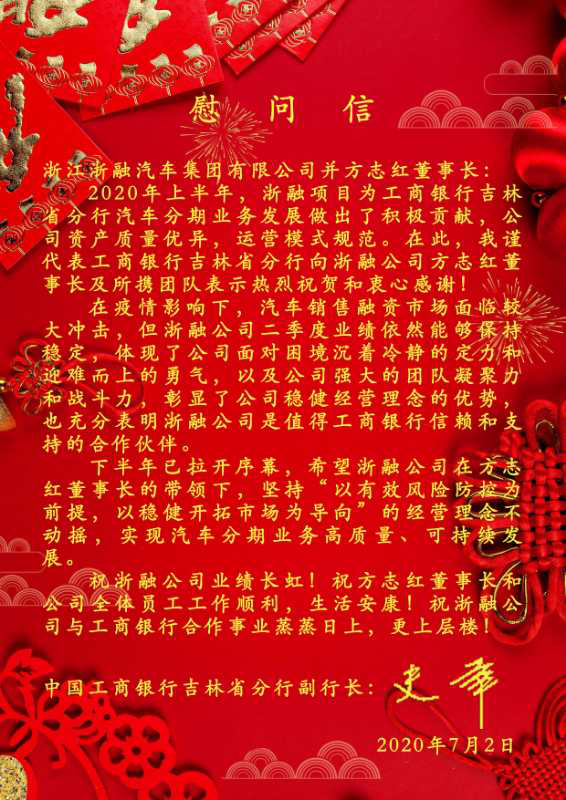 慰 问 信
浙江浙融汽车集团有限公司并方志红董事长：
2020年上半年，浙融项目为工商银行吉林
省分行汽车分期业务发展做出了积极贡献，公
司资产质量优异，运营模式规范。在此，我谨
代表工商银行吉林省分行向浙融公司方志红董
事长及所携团队表示热烈祝贺和衷心感谢！
在疫情影响下，汽车销售融资市场面临较
大冲击，但浙融公司二季度业绩依然能够保持
稳定，体现了公司面对困境沉着冷静的定力和
迎难而上的勇气，以及公司强大的团队凝聚力
和战斗力，彰显了公司稳健经营理念的优势，
也充分表明浙融公司是值得工商银行信赖和支
持的合作伙伴。
下半年已拉开序幕，希望浙融公司在方志
红董事长的带领下，坚持“以有效风险防控为
前提，以稳健开拓市场为导向”的经营理念不
动摇，实现汽车分期业务高质量、可持续发
展。
祝浙融公司业绩长虹！祝方志红董事长和
公司全体员工工作顺利，生活安康！祝浙融公
司与工商银行合作事业蒸蒸日上，更上层楼！
中国工商银行吉林省分行副行长：
2020年7月2日